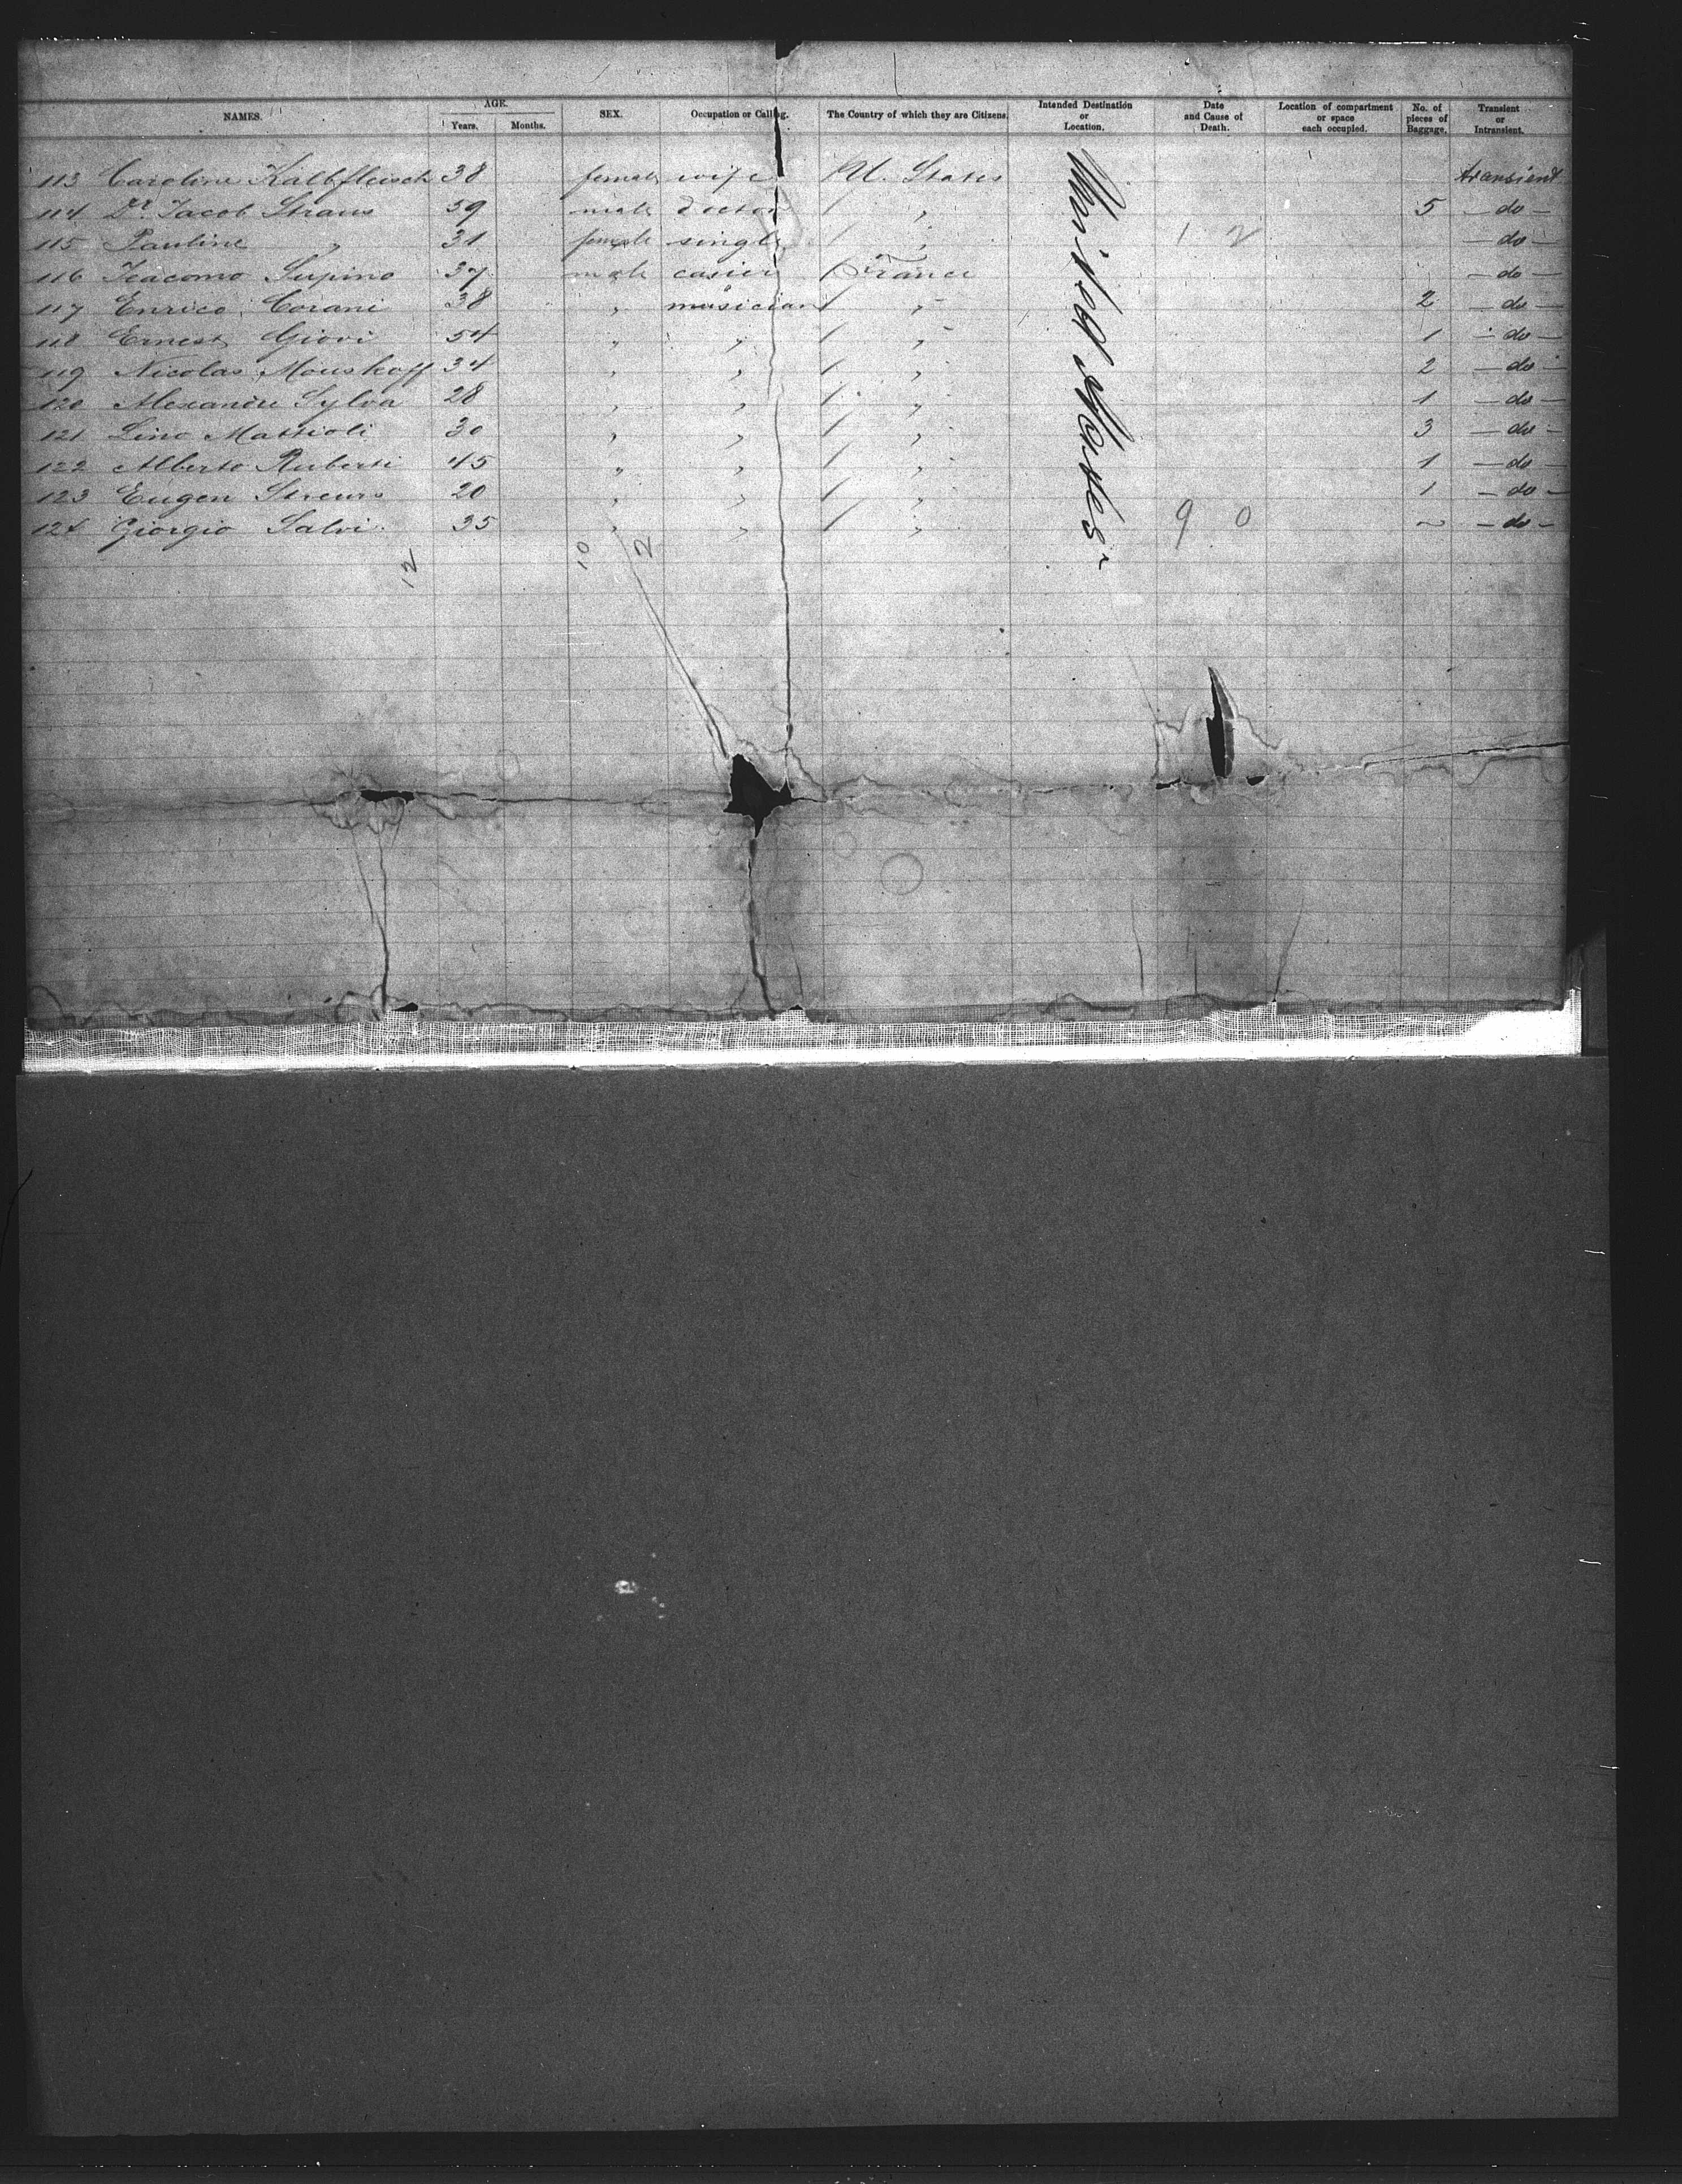 NAMES. AGE. Years. Months. SEX. Occupation or Calling. The Country of which they are Citizens. Intended Destination or Location. Date and Cause of Death. Location of compartment or space each occupied. No. of pieces of Baggage. Transient or Intransient.
113 Caroline Kalbfleisch 38 female wife U. States transient
114 Dr. Jacob Straus 59 male doctor " 5 — do —
115 Pauline " 31 female single " 1 2 — do —
116 Giacomo Supino 37 male casier France — do —
117 Enrico Corani 38 " musician " 2 — do —
118 Ernest Giovi 54 " " " 1 — do —
119 Nicolas Mouskoff 34 " " " 2 — do —
120 Alexandre Sylva 28 " " " 1 — do —
121 Lino Mattioli 30 " " " 3 — do —
122 Alberto Ruberti 45 " " " 1 — do —
123 Eugen 20 " " " 1 — do —
124 Giorgio Salvi 35 " " " 9 0 ~ — do —
United States
12 10 2